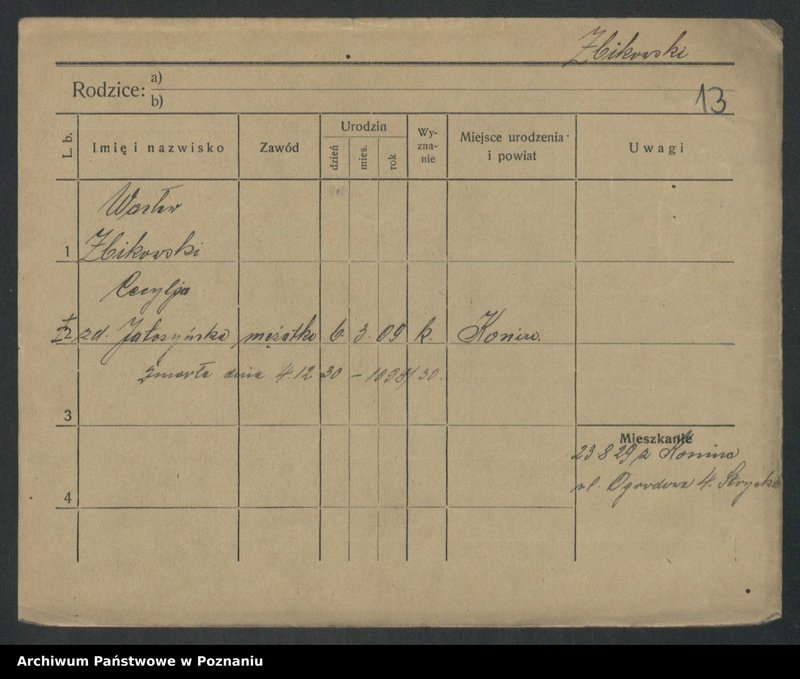 Zbikowski
Rodzice: a)
b)
13
L. b.
Imię i nazwisko
Zawód
Urodzin
dzień
mies.
rok
Wy-
zna-
nie
Miejsce urodzenia
i powiat
Uwagi
Wacław
1 Zbikowski
Cecylja
2 zd. Jałoszyńska mężatka 6 3. 09 k. Konin.
zmarła dnia 4.12 30 –
3
Mieszkanie
23 8 29 z Konina
ul. Ogrodowa 4.
4
Archiwum Państwowe w Poznaniu